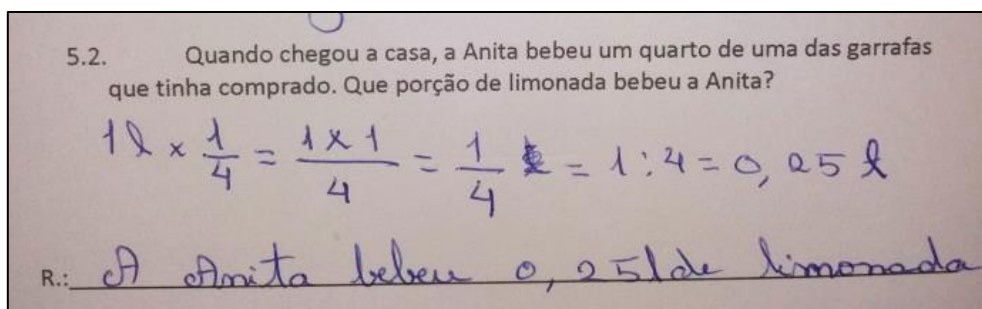 5.2. Quando chegou a casa, a Anita bebeu um quarto de uma das garrafas
que tinha comprado. Que porção de limonada bebeu a Anita?
1l × 1/4 = 1×1/4 = 1/4 = 1:4 = 0,25 l
R.: A Anita bebeu 0,25l de limonada